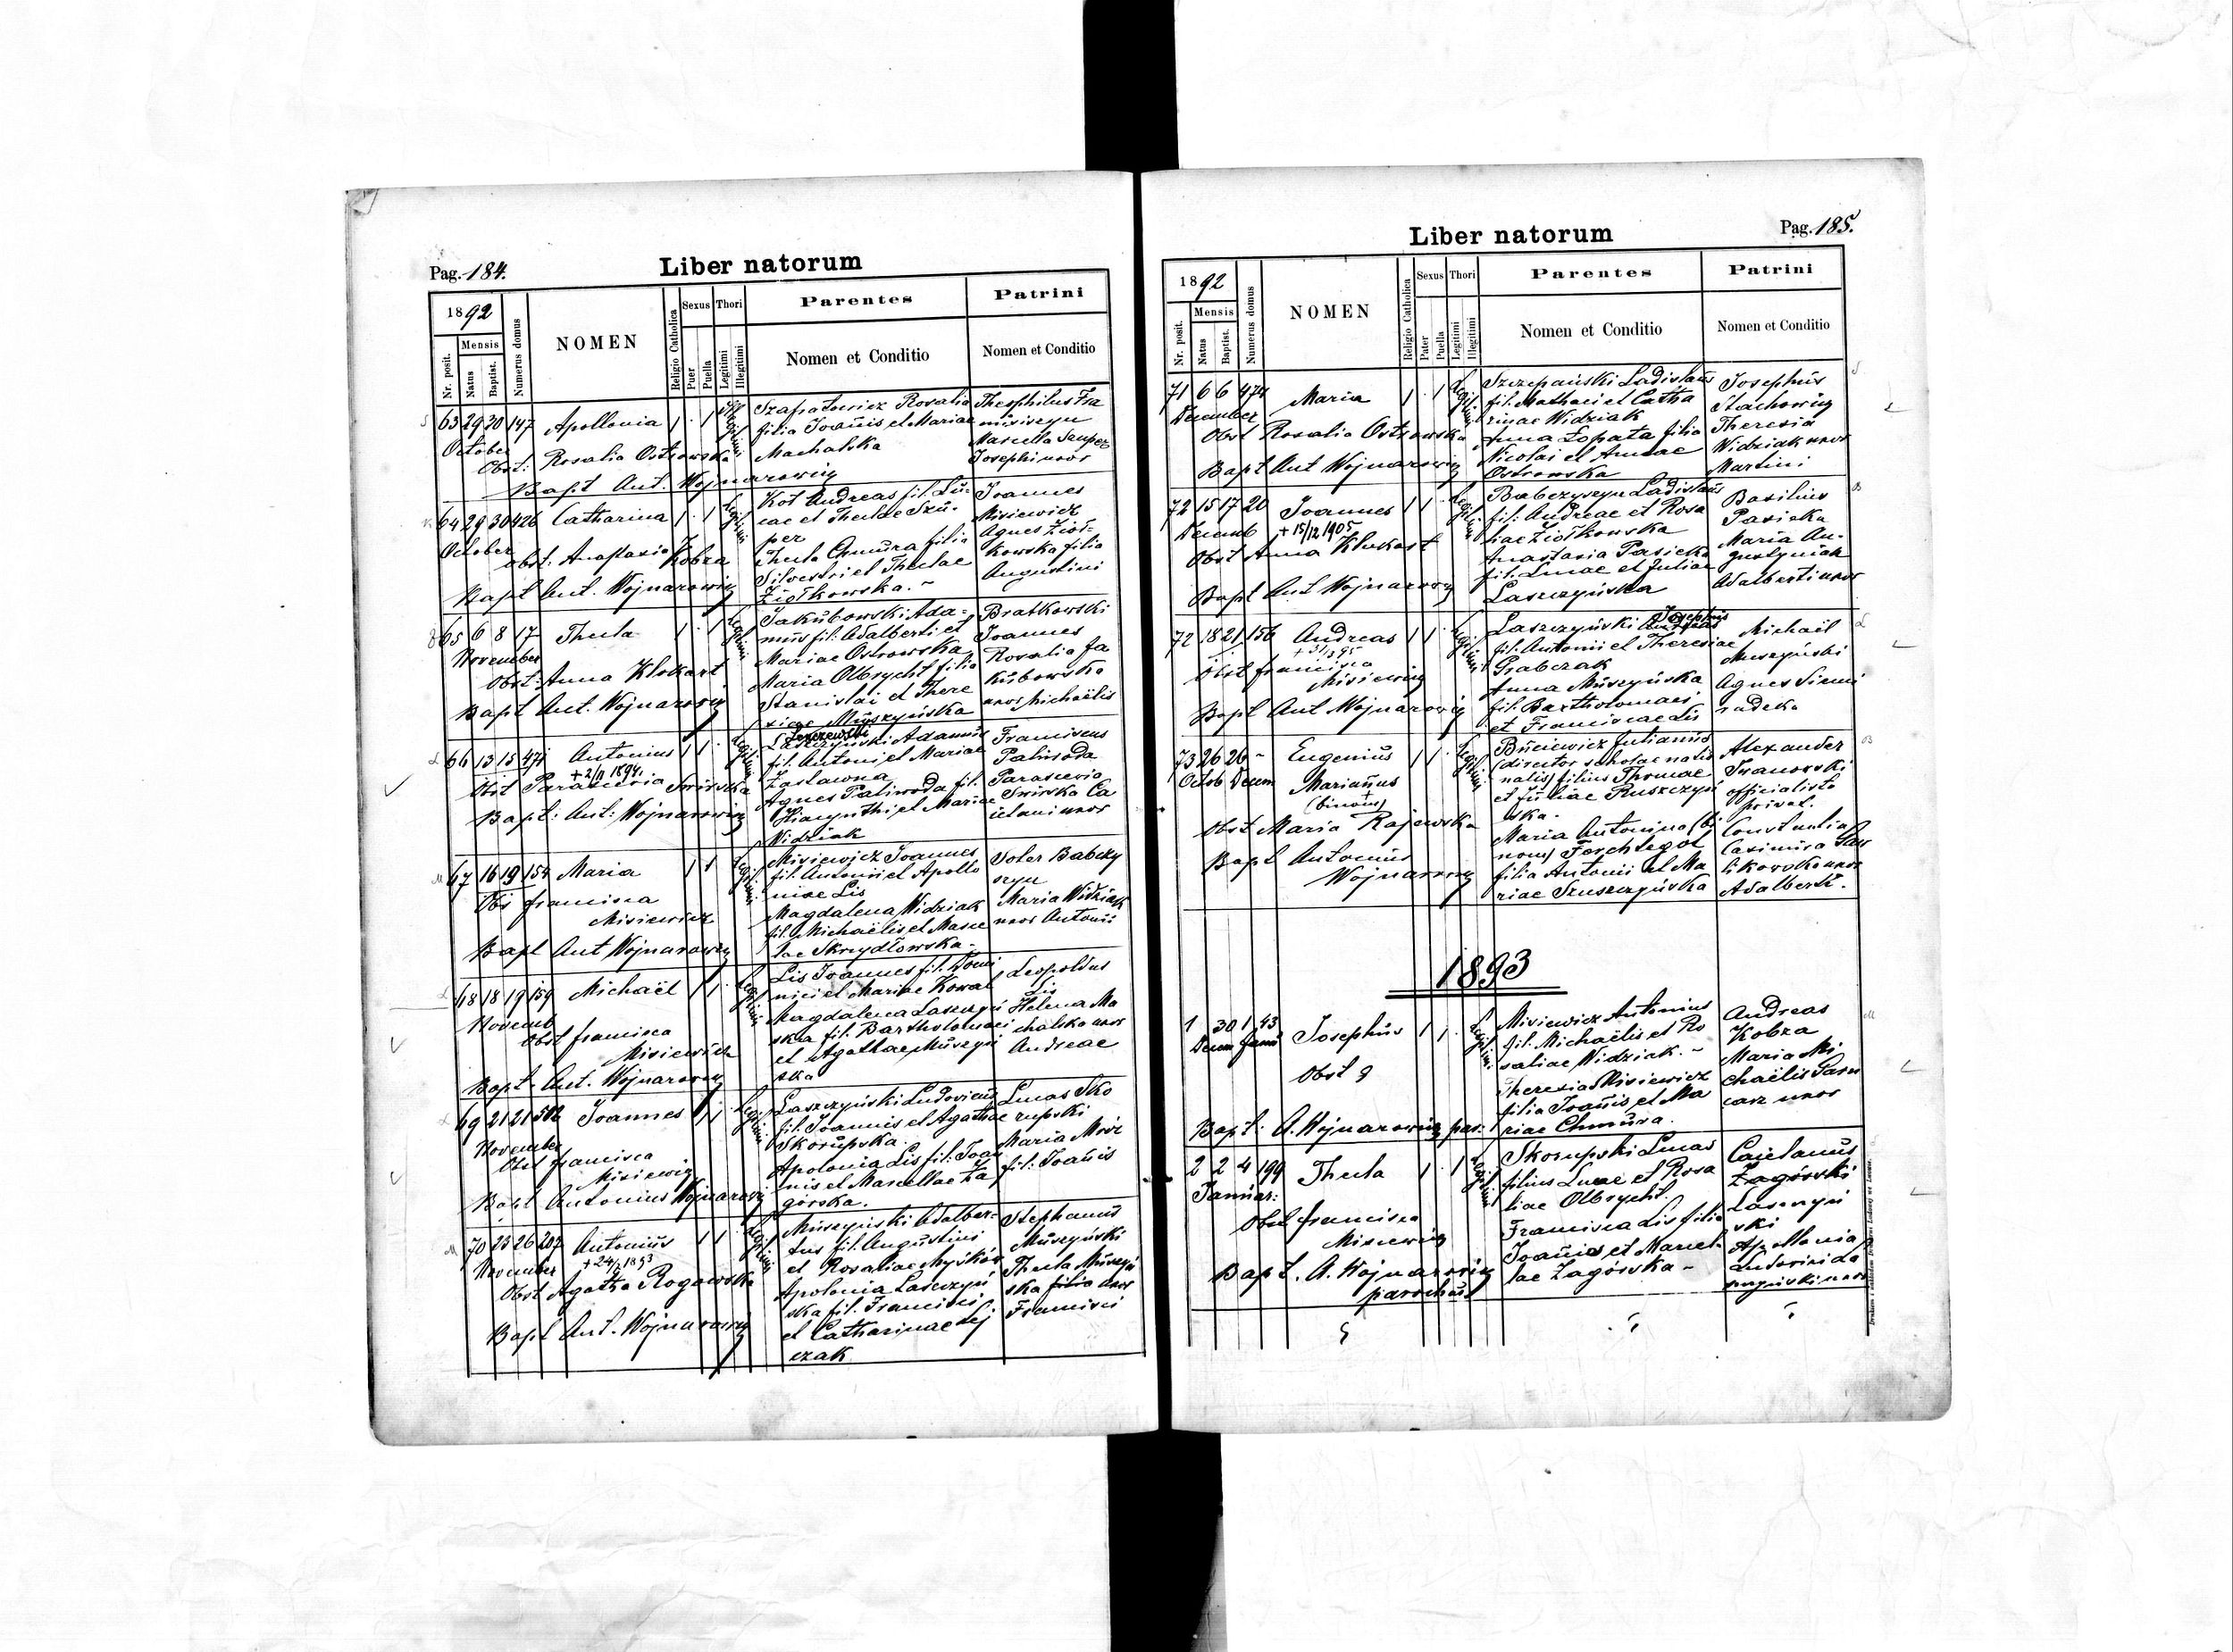 Pag. 184.
Liber natorum
1892
Nr. posit.
Mensis
Natus
Baptist.
Numerus domus
NOMEN
Religio Catholica
Sexus
Puer
Puella
Thori
Legitimi
Illegitimi
Parentes
Nomen et Conditio
Patrini
Nomen et Conditio
63 29 30 147 Apollonia 1 1
October
Obst: Rosalia Ostrowska
Bapt Ant. Wojnarowicz
Szafratowicz Rosalia
filia Joannis et Mariae
Machalska
Theophilus Fra
Marcella Szuper
Josephi uxor
64 29 30 426 Catharina 1 1
October
obst: Anastasia Kobza
Bapt Ant. Wojnarowicz
Kot Andreas fil. Lu-
cae et Theclae Szu-
per
Thecla Chmura filia
Silvestri et Theclae
Ziołkowska. ~
Joannes
Misiewicz
Agnes Zioł-
kowska filia
Augustini
65 6 8 17 Thecla 1 1
November
Obst: Anna Klokart
Bapt Ant. Wojnarowicz
Jakubowski Ada-
mus fil. Adalberti et
Mariae Ostrowska
Maria Olbrycht filia
Stanislai et There
siae Muszyńska
Bratkowski
Joannes
Rosalia Ja
kubowska
uxor Michaëlis
66 13 15 471 Antonius 1 1
+ 2/9 1894.
Obst Parascevia Swirska
Bapt: Ant: Wojnarowicz
Laszczyński Adamus
fil. Antoni et Mariae
Zastawna
Agnes Paliwoda fil.
Hiacynthi et Mariae
Widziak
Franciscus
Paliwoda
Parascevia
Swirska Ca
ietani uxor
67 16 19 154 Maria 1 1
Obs Francisca
Misiewicz
Bapt Ant Wojnarowicz
Misiewicz Joannes
fil. Antonii et Apollo
niae Lis
Magdalena Widziak
fil. Michaëlis et Marce
lae Skrzydłowska-
Voter Babczy
szyn
Maria Widziak
uxor Antonii
68 18 19 159 Michaël 1 1
Novemb
Obst Francisca
Misiewicz
Bapt. Ant. Wojnarowicz
Lis Joannes fil. Domi
nici et Mariae Kowal
Magdalena Laszczyń
ska fil. Bartholomaei
et Agathae Muszyń
ska
Leopoldus
Lis
Helena Ma
chalska uxor
Andreae
69 21 21 Joannes 1 1
November
Obst Francisca
Misiewicz
Bapt Antonius Wojnarowicz
Laszczyński Ludovicus
fil. Joannis et Agathae
Skorupska.
Apolonia Lis fil: Joan
nis et Marcellae Za
górska.
Lucas Sko
rupski
Maria
fil: Joannis
70 25 26 207 Antonius 1 1
+ 24/9 1893
November
Obst Agatha Rogowska
Bapt Ant. Wojnarowicz
Muszyński Adalber-
tus fil. Augustini
et Rosaliae Myśków
Apolonia Laszczyń
ska fil. Francisci
et Catharinae Lej
czak
Stephanus
Muszyński
Thecla Muszyń
ska filia uxor
Francisci
Pag. 185.
Liber natorum
1892
Nr. posit.
Mensis
Natus
Baptist.
Numerus domus
NOMEN
Religio Catholica
Sexus
Puer
Puella
Thori
Legitimi
Illegitimi
Parentes
Nomen et Conditio
Patrini
Nomen et Conditio
71 6 6 474 Maria 1 1
December
Obst Rosalia Ostrowska
Bapt Ant Wojnarowicz
Szczepański Ladislaus
fil. Mathaei et Catha
rinae Widziak
Anna Łopata filia
Nicolai et Annae
Ostrowska
Josephus
Stachowicz
Theresia
Widziak uxor
Martini
72 15 17 20 Joannes 1 1
+ 15/12 1905
Decemb
Obst Anna Klukart
Bapt Ant Wojnarowicz
Babczyszyn Ladislaus
fil: Andreae et Rosa
liae Ziołkowska
Anastasia Pasieka
fil. Lucae et Juliae
Laszczyńska
Basilius
Pasieka
Maria Au-
gustyniak
Adalberti uxor
72 18 21 156 Andreas 1 1
Obst Francisca
Misiewicz
Bapt Ant Wojnarowicz
Josephus
Laszczyński
fil. Antonii et Theresiae
Grabczak
Anna Muszyńska
fil. Bartholomaei
et Franciscae Lis
Michaël
Muszyński
Agnes Siemi
radzka
73 26 26 ~ Eugenius 1 1
Octob Decem Marianus
(binom)
Obst Maria Rajewska
Bapt Antonius
Wojnarowicz
Buciewicz Julianus
(director scholae
filius Thomae
et Juliae Ruszczyń
ska.
Maria Antonina (bi
nom) Forchtegot
filia Antonii et Ma
riae Szuszczyńska
Alexander
Iranowski
officialista
privat.
Constantia
Casimira
likowska uxor
Adalberti.
1893
1 30 1 43 Josephus 1 1
Decem Janu
Obst
Bapt: A. Wojnarowicz par.
Misiewicz Antonius
fil. Michaëlis et Ro
saliae Widziak. ~
Theresia Misiewicz
filia Joannis et Ma
riae Chmura.
Andreas
Kobza
Maria Mi
chaëlis
uxor
2 2 4 199 Thecla 1 1
Januar:
Obst Francisca
Misiewicz
Bapt. A. Wojnarowicz
parochus
Skorupski Lucas
filius Lucae et Rosa
liae Olbrycht.
Francisca Lis filia
Joannis et Marcel-
lae Zagórska ~
Caietanus
Zagórski
Laszczyń
ski
Apollonia
Ludovici La
szczyński uxor